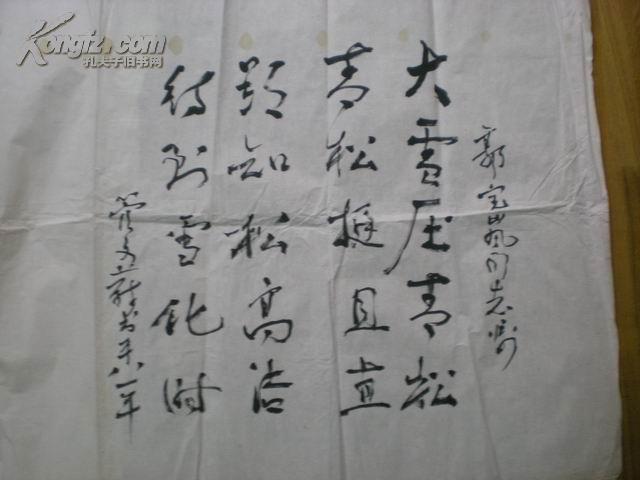 郭宝凤同志嘱
大雪压青松
青松挺且直
欲知松高洁
待到雪化时
管文蔚书于八一年
Kongfz.com
孔夫子旧书网